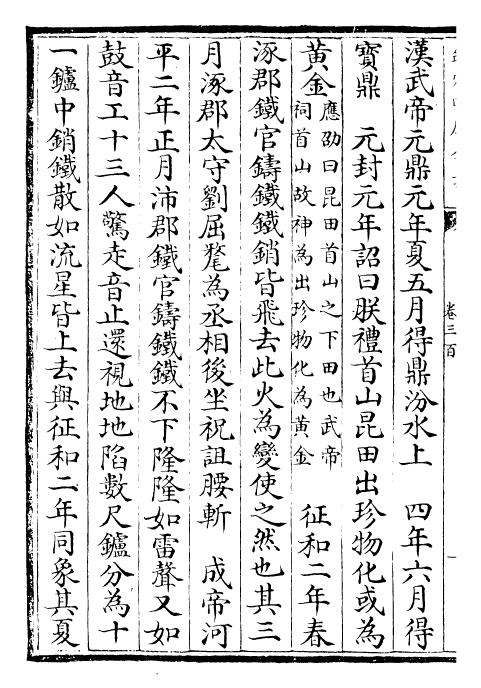 漢武帝元鼎元年夏五月得鼎汾水上　四年六月得
寶鼎　元封元年詔曰朕禮首山昆田出珍物化或為
黃金應劭曰昆田首山之下田也武帝
祠首山故神為出珍物化為黃金　征和二年春
涿郡鐵官鑄鐵鐵銷皆飛去此火為變使之然也其三
月涿郡太守劉屈氂為丞相後坐祝詛腰斬　成帝河
平二年正月沛郡鐵官鑄鐵鐵不下隆隆如雷聲又如
鼓音工十三人驚走音止還視地地陷數尺鑪分為十
一鑪中銷鐵散如流星皆上去與征和二年同象其夏
卷三百